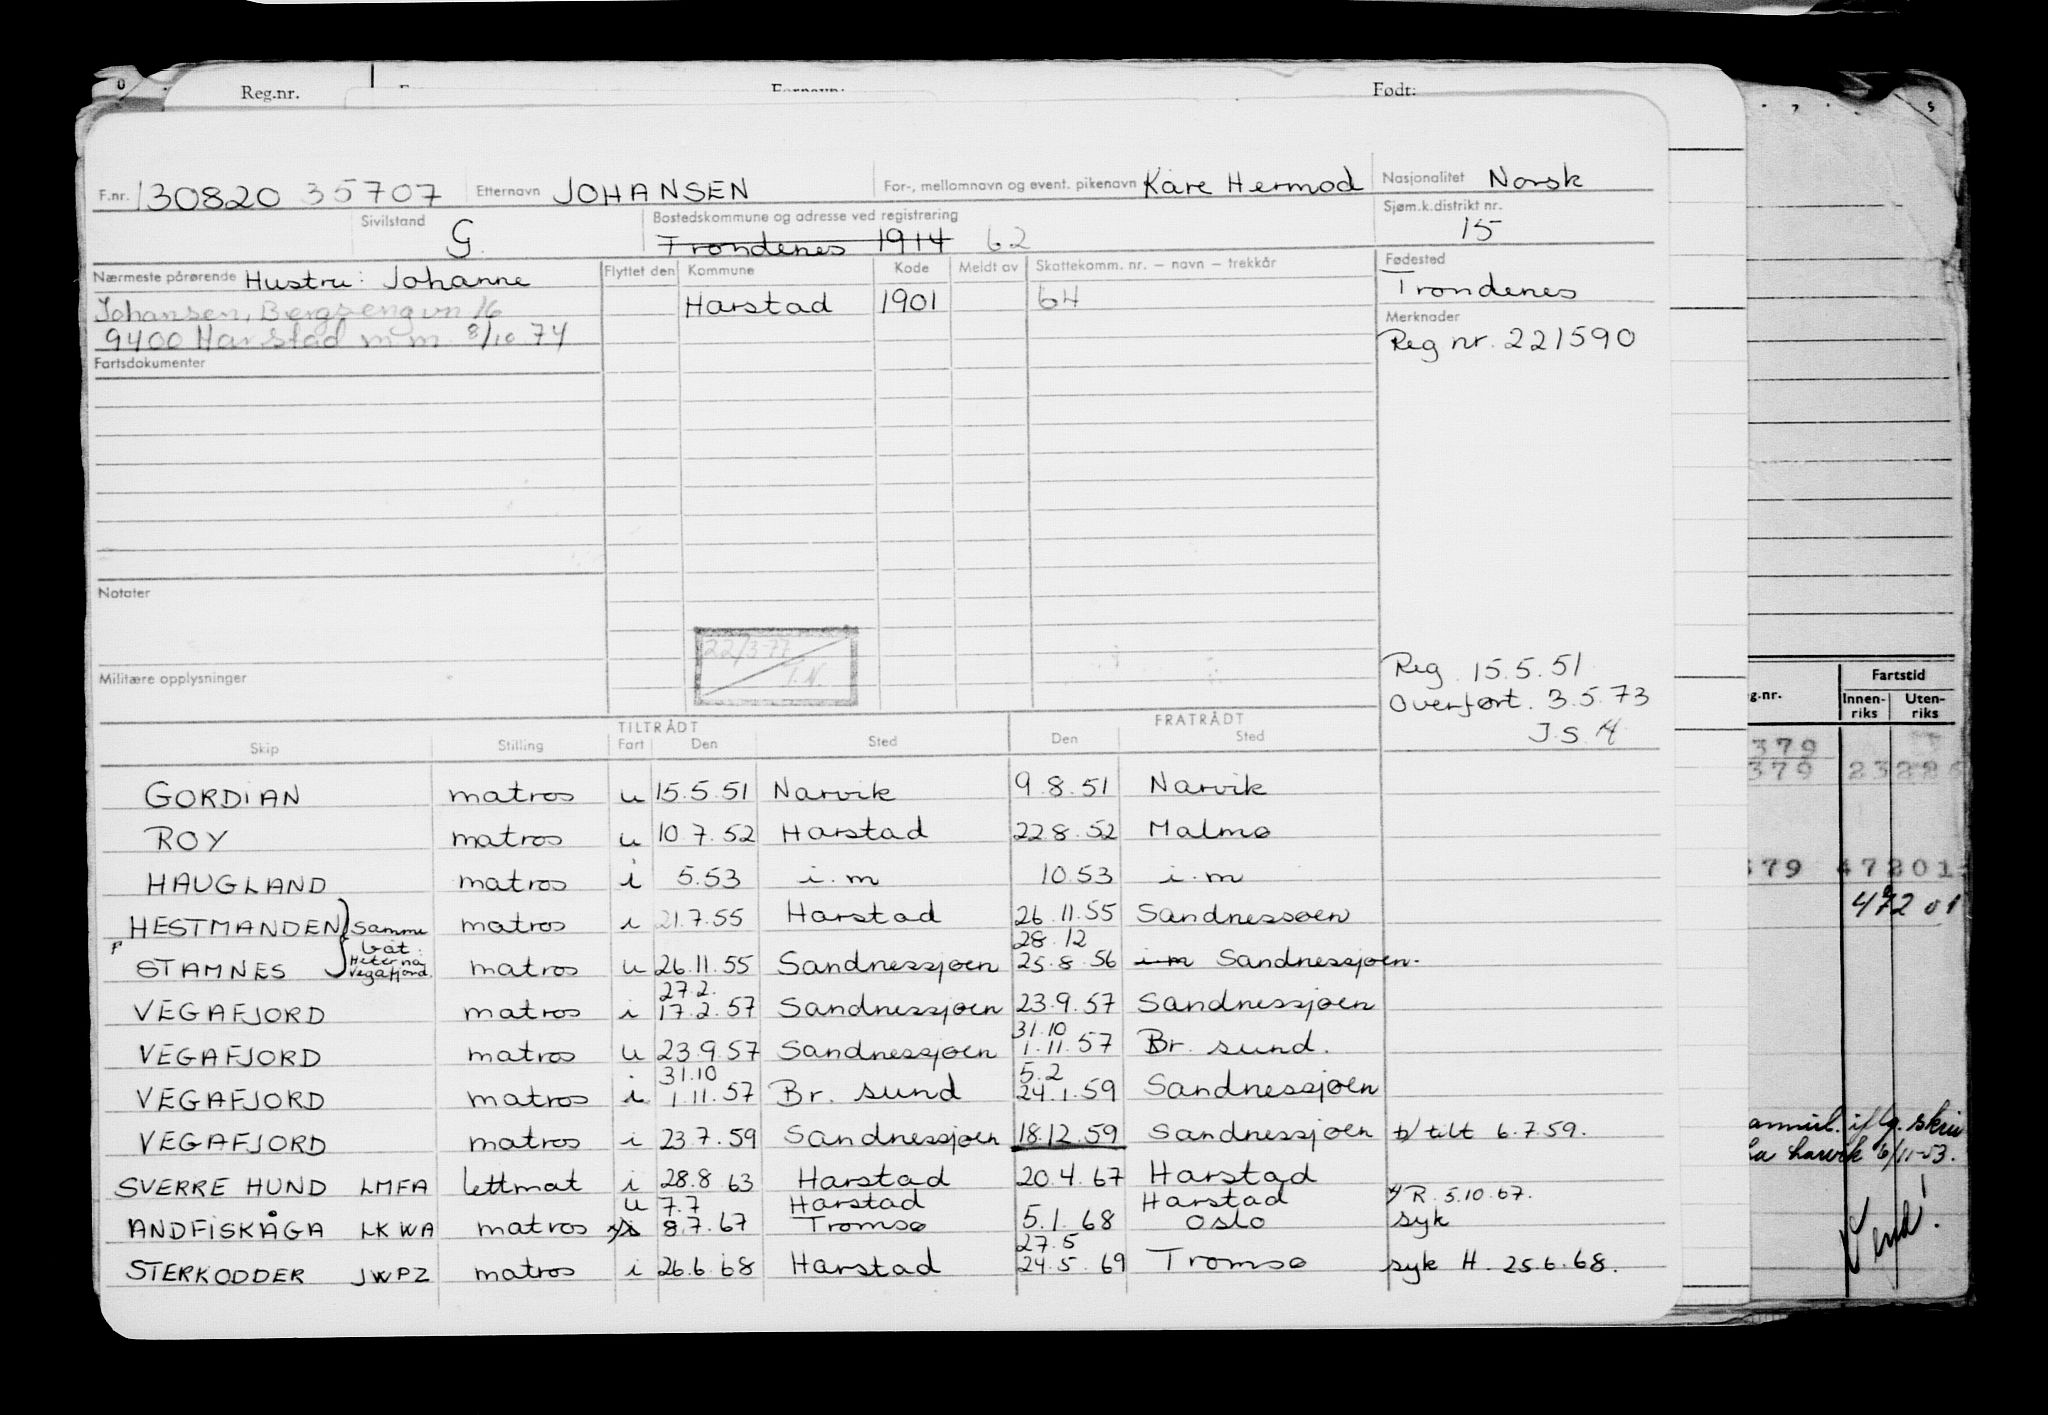 Reg.nr. Fornavn: Født:
F.nr. 130820 35707 Etternavn JOHANSEN For-, mellomnavn og event. pikenavn Kåre Hermod Nasjonalitet Norsk
Sivilstand G. Bostedskommune og adresse ved registrering Trondenes 1914 62 Sjøm.k.distrikt nr. 15
Nærmeste pårørende Hustru: Johanne Flyttet den Kommune Kode Meldt av Skattekomm. nr. – navn – trekkår Fødested
Johansen, Bergsengvn 16 Harstad 1901 64 Trondenes
9400 Harstad m.m. 8/10 74 Merknader
Reg nr. 221590
Fartsdokumenter
Notater
22/3-77
T.N.
Militære opplysninger
Reg. 15.5.51
Overført. 3.5.73
J.S.H
TILTRÅDT FRATRÅDT
Skip Stilling Fart Den Sted Den Sted
GORDIAN matros u 15.5.51 Narvik 9.8.51 Narvik
ROY matros u 10.7.52 Harstad 22.8.52 Malmø
HAUGLAND matros i 5.53 i.m 10.53 i.m
HESTMANDEN matros i 21.7.55 Harstad 26.11.55 Sandnessøen
Samme båt. Heter nå Vegafjord.
28.12
STAMNES matros u 26.11.55 Sandnessjøen 25.8.56 i.m Sandnessjøen.
27.2.
VEGAFJORD matros i 17.2.57 Sandnessjøen 23.9.57 Sandnessjøen
31.10
VEGAFJORD matros u 23.9.57 Sandnessjøen 1.11.57 Br. sund.
31.10 5.2
VEGAFJORD matros i 1.11.57 Br. sund 24.1.59 Sandnessjøen
VEGAFJORD matros i 23.7.59 Sandnessjøen 18.12.59 Sandnessjøen t/ tilt 6.7.59.
SVERRE HUND LMFA lettmat i 28.8 63 Harstad 20.4.67 Harstad
u 7.7 Harstad Harstad R. 5.10.67.
ANDFISKÅGA LKWA matros i 8.7.67 Tromsø 5.1.68 Oslo syk
27.5
STERKODDER JWPZ matros i 26.6.68 Harstad 24.5.69 Tromsø syk H. 25.6.68.
g.nr. Fartstid
Innen-riks Uten-riks
379
379
79
472 01
iflg. skriv
6/11-53.
Vend!